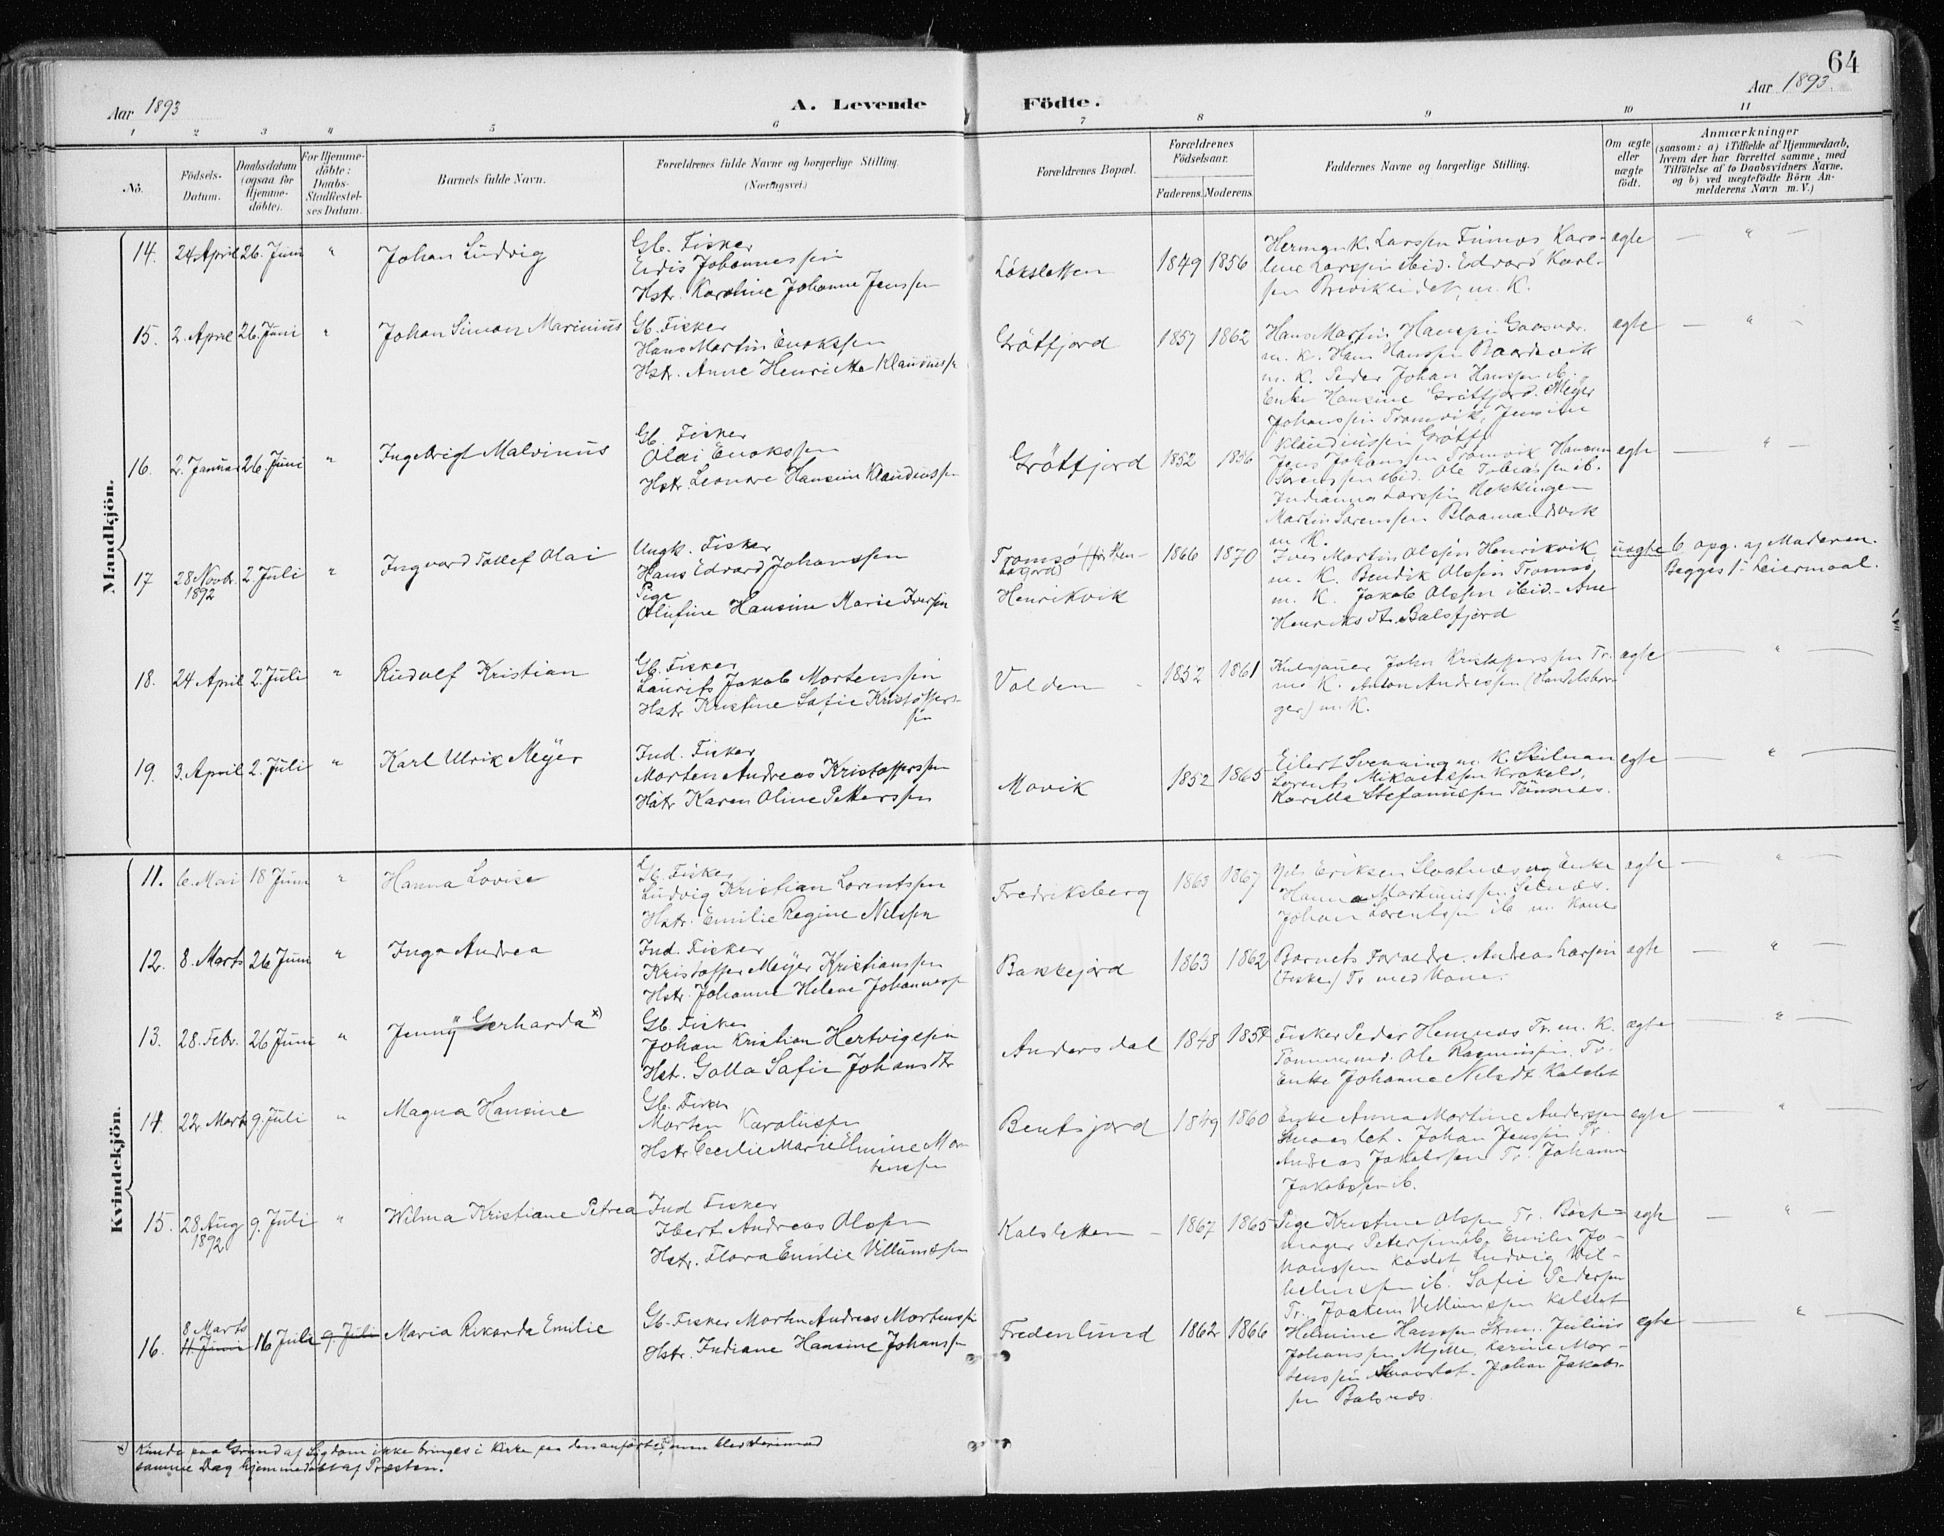 64
Aar 1893
A. Levende Födte.
Aar 1893.
1 2 3 4 5 6 7 8 9 10 11
No.
Födsels-Datum.
Daabsdatum (ogsaa for Hjemme-döbte).
For Hjemme-döbte: Daabs-Stadfæstel-ses Datum.
Barnets fulde Navn.
Forældrenes fulde Navne og borgerlige Stilling. (Næringsvei.)
Forældrenes Bopæl.
Forældrenes Födselsaar.
Faderens. Moderens.
Faddernes Navne og borgerlige Stilling.
Om ægte eller uægte födt.
Anmærkninger
(saasom: a) i Tilfælde af Hjemmedaab,
hvem der har forrettet samme, med
Tilföielse af to Daabsvidners Navne,
og b) ved uægtefödte Börn An-
melderens Navn m. V.)
Mandkjön.
14. 24 April 26. Juni " Johan Ludvig
Gb. Fisker
Johannessen
Hstr. Karoline Johanne Jenssen
Løksletten 1849 1856
Herman K. Larssen Finnæs Karo-
line Larssen ibid. Edvard Karl-
sen Brevikeidet, m. K.
ægte — " —
15. 2. April 26. Juni " Johan Simon Marinius
Gb. Fisker
Hans Martin Enokssen
Hstr. Anne Henriette Klaudiuss.
Grötfjord 1857 1862
Hans Martin Hanssen
m. K. Hans Hanssen Baardsvik
m. K. Peder Johan Hanssen ib.
Enke Hansine Grötfjord. Meÿer
Johanssen Tromvik, Jensine
Klaudiussen Grötfj.
ægte — " —
16. 2. Januar 26. Juni " Ingebrigt Malvinus
Gb. Fisker
Olai Enokssen
Hstr. Leonore Hansine Klaudiussen
Grötfjord 1852 1856
Jens Johanssen Tromvik Hansine
Sorenssen ibid. Ole Tobiassen ib.
Indianna Larssen Hekkingen
Martin Sorenssen Blaamandsvik
m K.
ægte — " —
17 28 Novbr. 1892 2. Juli " Ingvard Tollef Olai
Ungk. Fisker
Hans Edvard Johanssen
Pige
Olufine Hansine Marie Iverssen
Tromsø
Henrikvik
1866 1870
Iver Martin Olssen Henrikvik
m. K. Bendik Olssen Tromsø
m. K. Jakob Olssen ibid. Ane
Henriksdt. Balsfjord
uægte 6 opg. af Moderen.
Begges 1ste Leiermaal.
18. 24 April 2. Juli " Rudolf Kristian
Gb. Fisker
Laurits Jakob Mortenssen
Hstr Kristine Safie Kristoffers-
sen
Valden 1852 1861
John Kristofferssen Tr.
m K. Anton Andreassen (Handelsbor-
ger) m. K.
ægte — " —
19. 3. April 2. Juli " Karl Ulrik Meÿer
Ind. Fisker
Morten Andreas Kristofferssen
Hstr Karen Oline Petterssen
Mavik 1852 1865
Eilert Svenning m. K.
Lorents Mikaelssen
Karella Stefanussen Tönsnes.
ægte — " —
Kvindekjön.
11. 6. Mai 18 Juni " Hanna Lovise
Gb. Fisker
Ludvig Kristian Lorentssen
Hstr. Emilie Regine Nilssen
Fredriksberg 1863 1867
Nils Eriksen og Enke
Hanna Martinussen
Johan Lorentssen ib m. Kone
ægte — " —
12. 8. Marts 26 Juni " Inga Andrea
Ind. Fisker
Kristoffer Meÿer Kristianssen
Hstr. Johanne Helene Johanness.
Bakkejord 1863 1862
Barnets Forældre. Andreas Larssen
(Fisker) Tr. med Kone.
ægte — " —
13. 28. Febr. 26 Juni " Jennÿ Gerharda x)
Gb. Fisker
Johan Kristian Hertvigssen
Hst. Golla Safie Johansdtr
Andersdal 1848
Fisker Peder Hemnæs Tr. m. K.
Tömmermd. Ole Rasmussen Tr.
Enke Johanne Nilsdt Kalslet
ægte — " —
14. 22. Marts 9. Juli " Magna Hansine
Gb. Fisker
Morten Karolussen
Hstr Cecilie Marie Elmine Mor-
tenssen
Bentsjord 1849 1860
Enke Anna Martine Anderssen
Johan Jenssen Tr.
Andreas Jakobssen Tr. Johanna
Jakobssen ib.
ægte — " —
15. 28. Aug 1892 9. Juli " Wilma Kristiane Petrea
Ind Fisker
Ebert Andreas Olssen
Hstr. Flora Emilie Villumssen
Kalsletten — 1867 1865
Pige Kristine Olssen Tr. Bøss-
mager Peterssen ib. Emilie Jo-
hanssen Ludvig Wil-
helmssen ib. Safie Pederssen
Tr. Joakim Villumssen Kalslet
ægte — " —
16. 8 Marts 11 Juni 16 Juli 9 Juli Maria Rikarda Emilie
Gb. Fisker Morten Andreas Mortenss.
Hstr. Indiane Hansine Johanss.
Fredenlund 1862 1866
Helmine Hanssen Julius
Johanssen Mjelle, Karine Mor-
tenssen Johan Jakobs-
sen Balsnes
ægte — " —
x) Kunde paa Grund af Sygdom ikke bringes i Kirke paa den anførte , men blev derimod
samme Dag hjemmedøbt af Præsten.